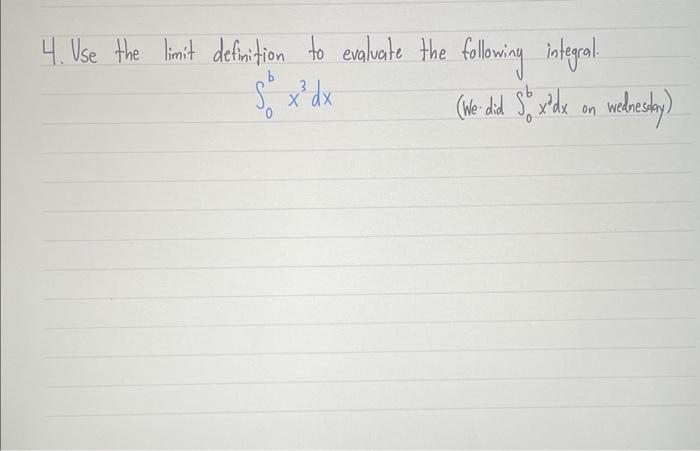 4. Use the limit definition to evaluate the following integral.
∫₀ᵇ x³ dx (We did ∫₀ᵇ x²dx on wednesday)